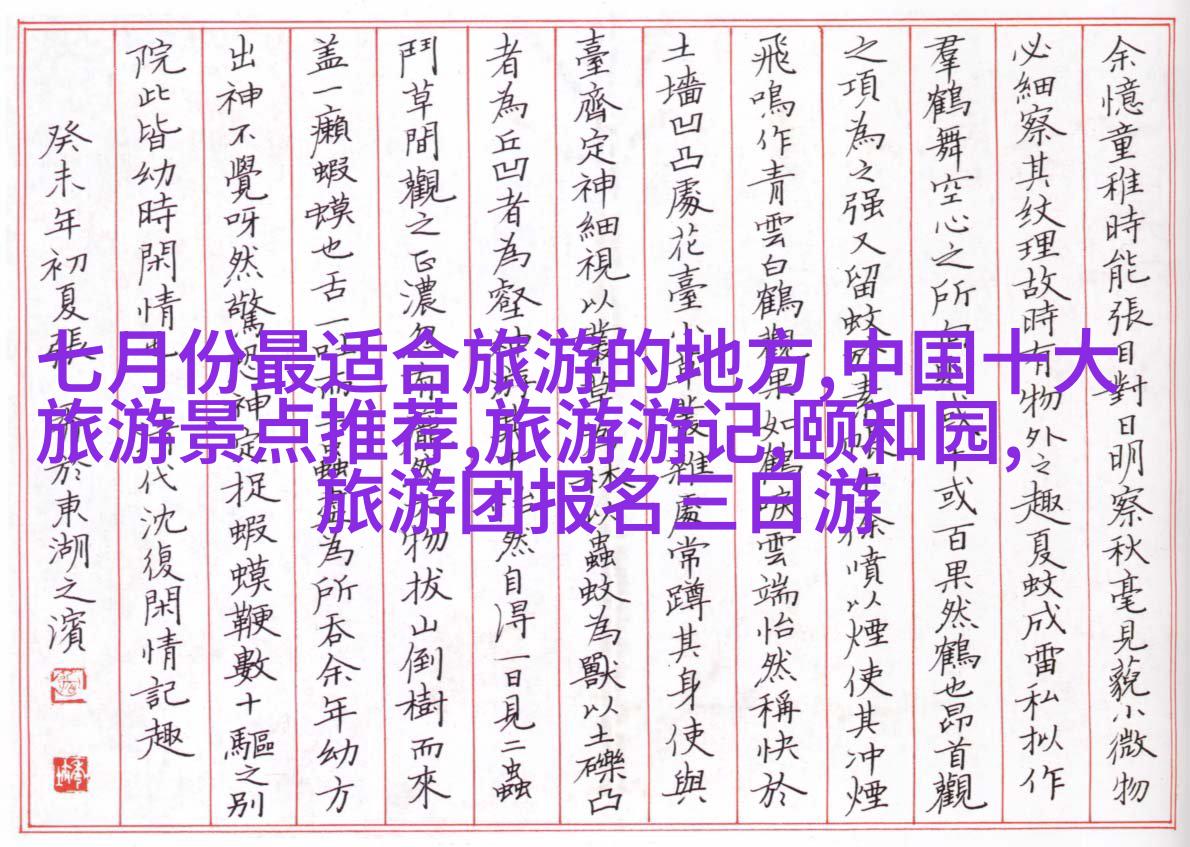 余憶童稚時能張目對日明察秋毫見藐小微物
必細察其纹理故時有物外之趣夏蚊成雷私拟作
羣鶴舞空心之所或百果然鶴也昂首觀
之項為之强又留蚊素徐噴以煙使其冲煙
飛鳴作青雲白鶴觀果如鶴唳雲端怡然稱快於
土墻凹凸處花臺小草叢雜處常蹲其身使與
臺齊定神細視以叢草為林以蟲蚊為獸以土礫凸
者為丘凹者為壑怡然自得一日見二蟲
鬥草間觀之正濃忽有龐然大物拔山倒樹而來
盖一癩蝦蟆也舌一吐而二蟲盡為所吞余年幼方
出神不覺呀然驚恐神定捉蝦蟆鞭數十驅之别
院此皆幼時閑情代沈復閑情記趣
癸未年初夏張於東湖之濱
七月份最适合旅游的地方,中国十大
旅游景点推荐,旅游游记,颐和园,
旅游团报名三日游